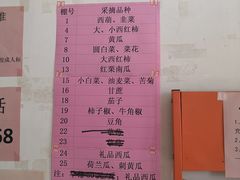 棚号 采摘品种
1 西葫、韭菜
4 大、小西红柿
7 黄瓜
8 圆白菜、菜花
10 大西红柿
13 红栗南瓜
15 小白菜、油麦菜、苦菊
16 甘蔗
18 茄子
19 柿子椒、牛角椒
20 豆角
22
23
24 礼品西瓜
25 荷兰瓜、刺黄瓜
注:
话
58